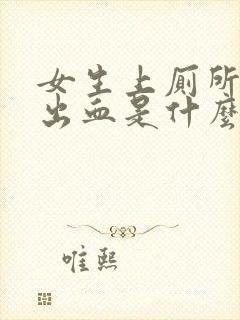 女生上厕所
出血是什麼
唯熙